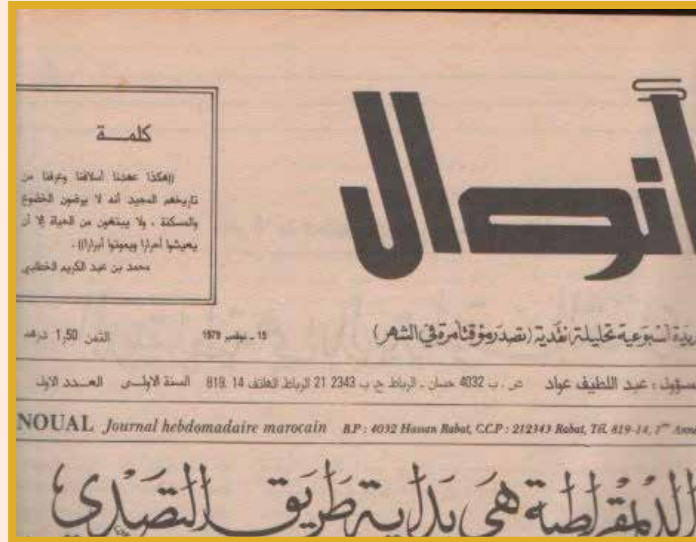 أنوال
كلمــــة
((هكذا عهدنا أسلافنا وعرفنا من
تاريخهم المجيد أنه لا يرضون الخضوع
والمسكنة ، ولا يبتغون من الحياة إلا أن
يعيشوا أحرارا ويموتوا أبرارا)) .
محمد بن عبد الكريم الخطابي
أسبوعية تحليلية نقدية (تصدر مؤقتا مرة في الشهر)
15 ـ نوفمبر 1979
الثمن 1,50 درهم
عبد اللطيف عواد ص . ب 4032 حسان ـ الرباط ح ب 2343 21 الرباط الهاتف 14 . 819 السنة الاولــى العــدد الاول
NOUAL Journal hebdomadaire marocain B.P : 4032 Hassan Rabat, C.C.P : 212343 Rabat, Tél. 819-14, 1
الديمقراطية هي بداية طريق التصدي